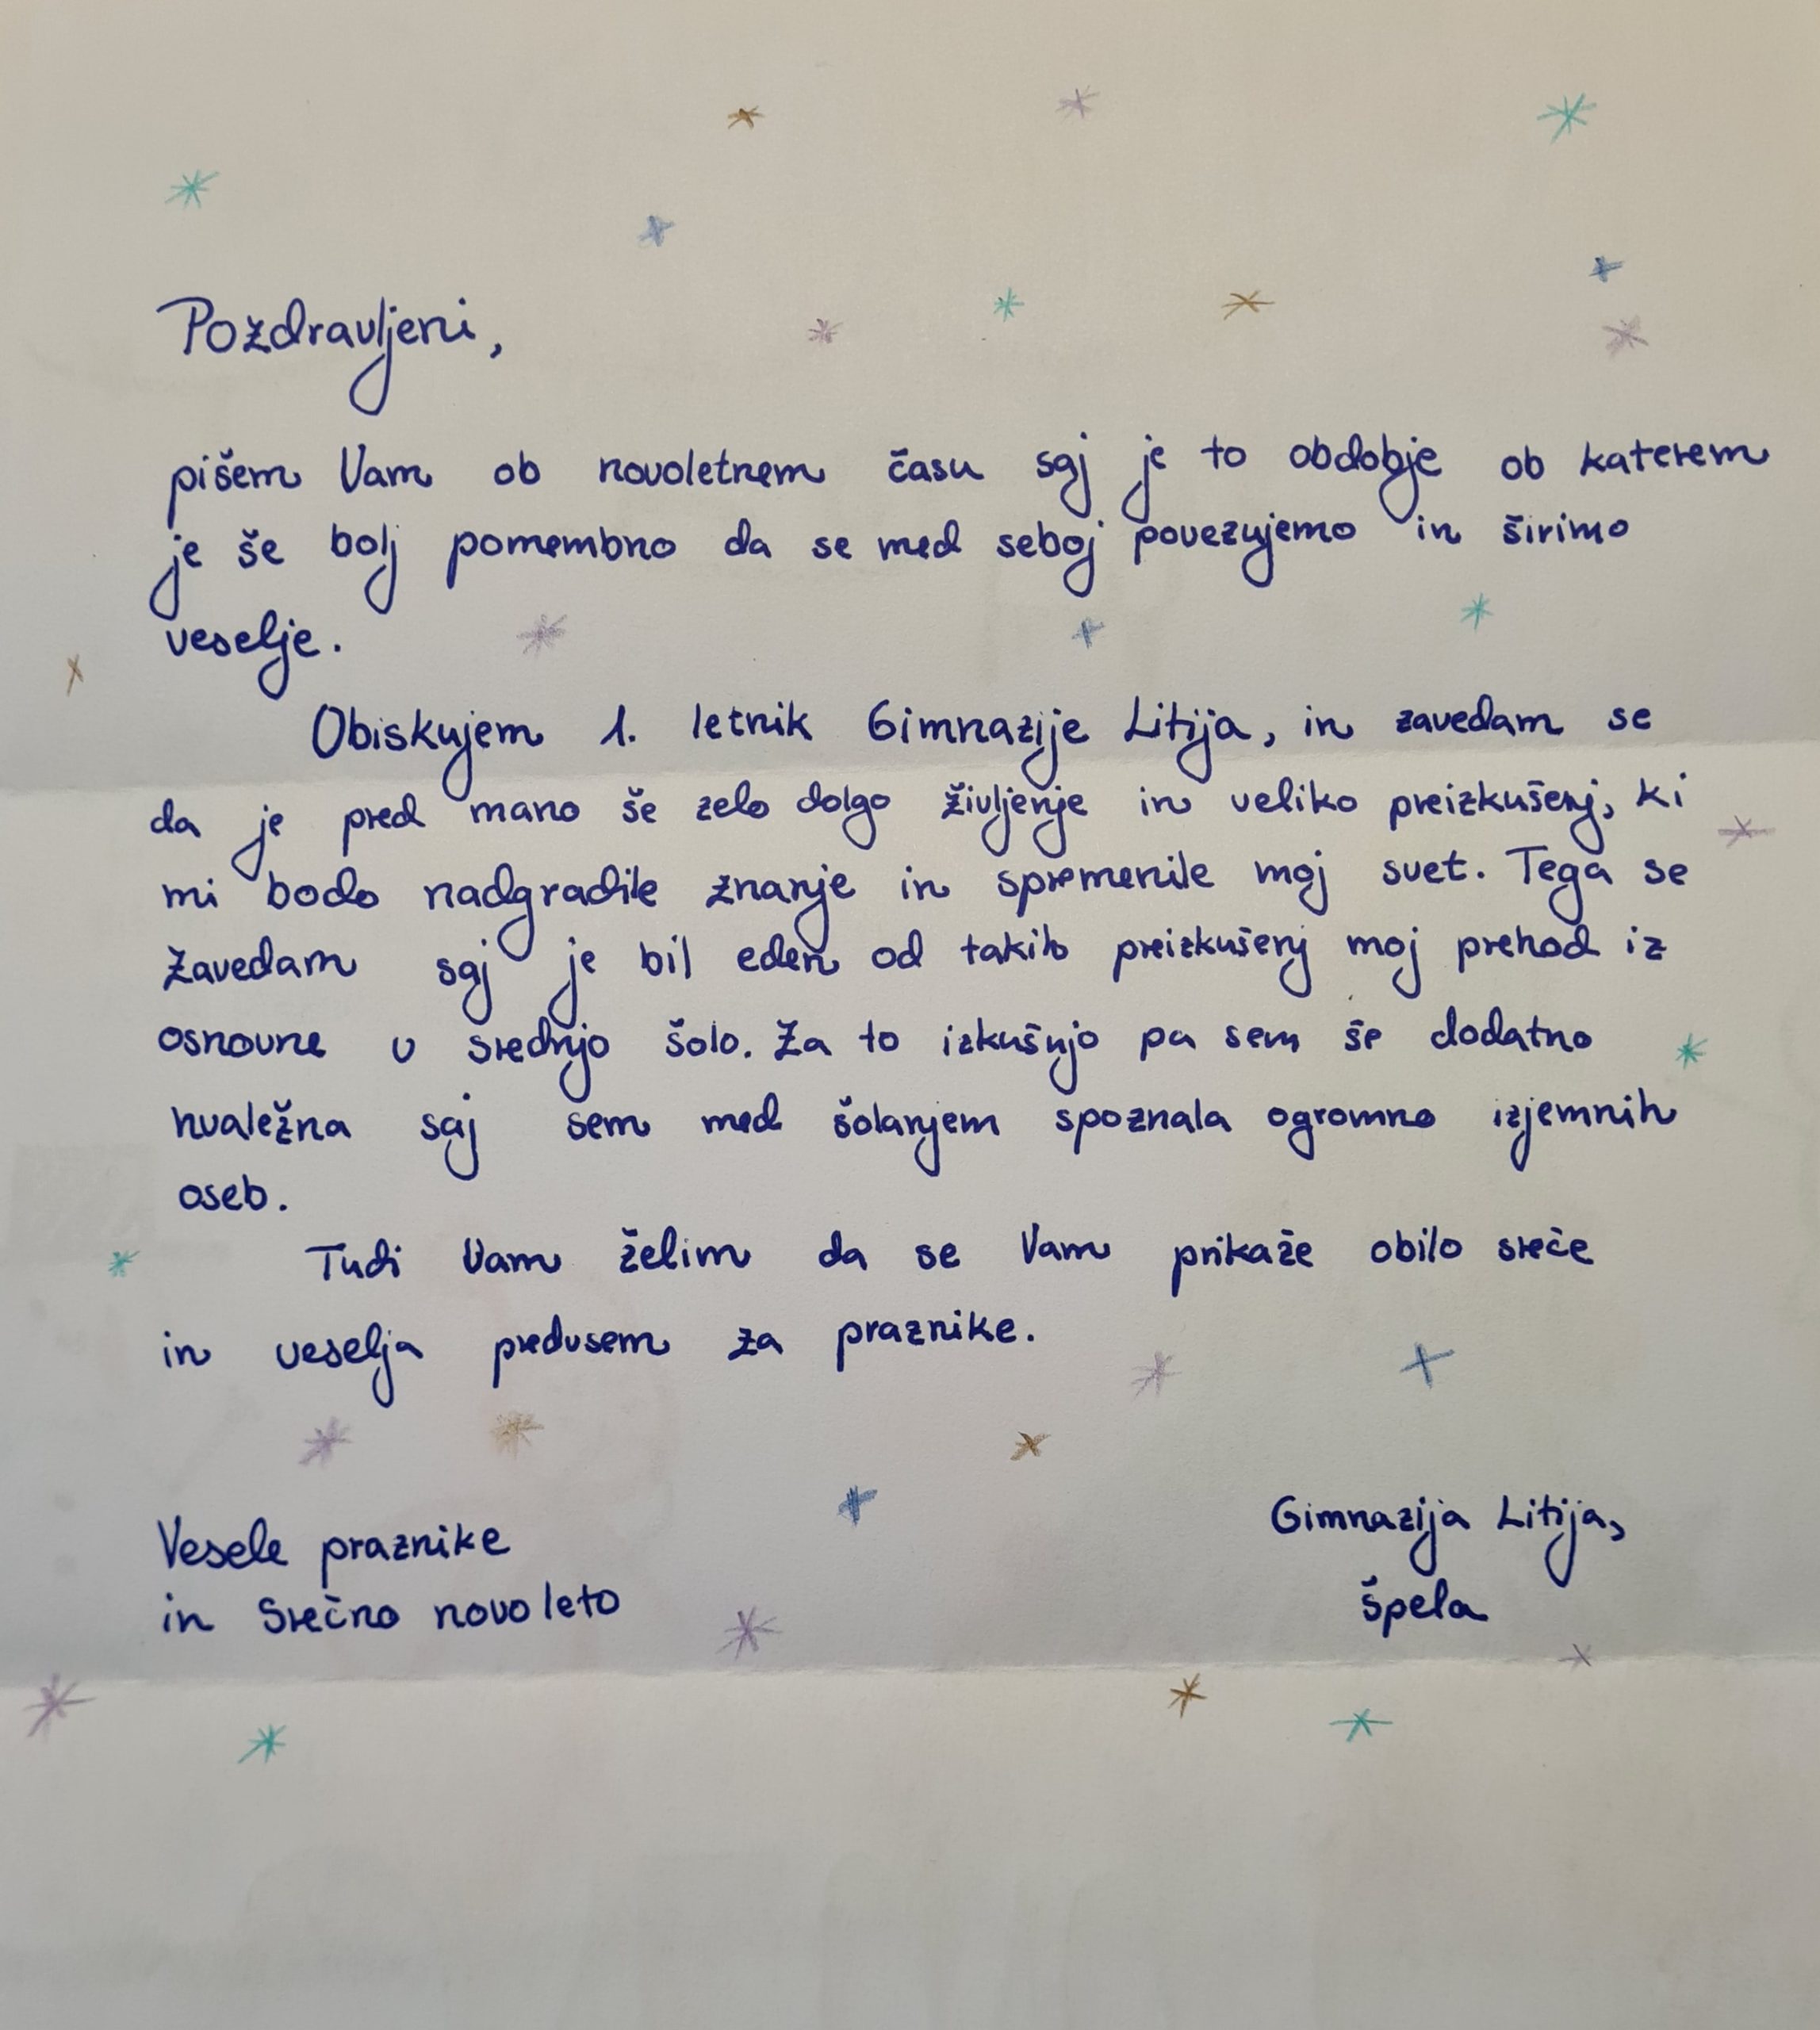 Pozdravljeni,
pišem Vam ob novoletnem času saj je to obdobje ob katerem
je še bolj pomembno da se med seboj povezujemo in širimo
veselje.
Obiskujem 1. letnik Gimnazije Litija, in zavedam se
da je pred mano še zelo dolgo življenje in veliko preizkušenj, ki
mi bodo nadgradile znanje in spremenile moj svet. Tega se
zavedam saj je bil eden od takih preizkušenj moj prehod iz
osnovne v srednjo šolo. Za to izkušnjo pa sem še dodatno
hvaležna saj sem med šolanjem spoznala ogromno izjemnih
oseb.
Tudi Vam želim da se Vam prikaže obilo sreče
in veselja predvsem za praznike.
Vesele praznike
in Srečno novo leto
Gimnazija Litija,
Špela